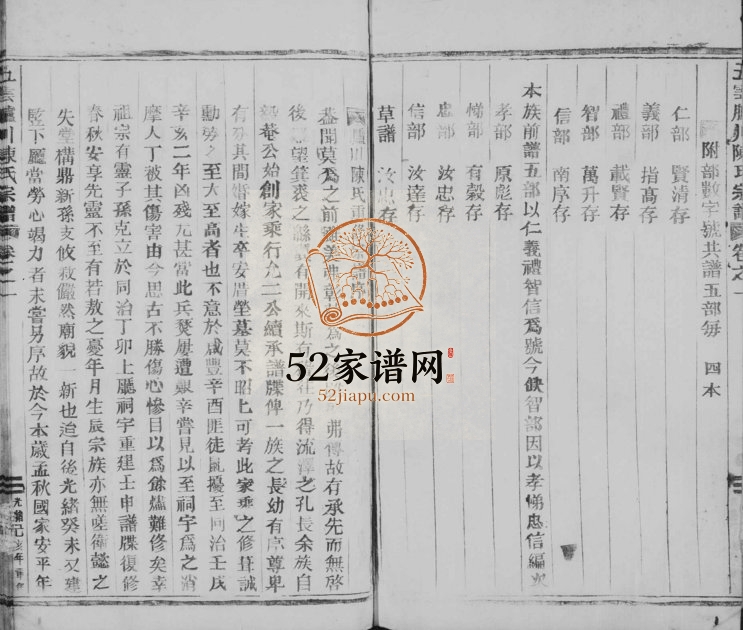 五雲 川陳氏宗譜 卷之一
附部數字號共譜五部每 四本
仁部 賢清存
義部 指高存
禮部 載賢存
智部 萬升存
信部 南庠存
本族前譜五部以仁義禮智信為號今缺智部因以孝悌忠信編次
孝部 原彪存
悌部 有毅存
忠部 汝忠存
信部 汝達存
草譜 汝忠存
川陳氏重修
蓋聞莫為之前雖美弗彰 弗傳故有承先而無啓
後 望箕裘之 有開來斯有 乃得流澤之孔長余族自
菴公始創家乘行九二公續承譜牒俾一族之長幼有序尊卑
有 其間婚嫁生卒安厝塋墓莫不昭 可考此家乘之修葺誠
動勞之至大至高者也不意於咸豐辛酉匪徒亂擾至同治壬戌
辛亥二年凶殘尤甚當此兵燹屢遭艱辛嘗見以至祠宇為之消
摩人丁被其傷害由今思古不勝傷心慘目以為餘燼難修矣幸
祖宗有靈子孫克立於同治丁卯上廳祠宇重建壬申譜牒復修
春秋安享先靈不至有若敖之憂年月生辰宗族亦無嗟 懿之
失堂構鼎新孫支攸敘儼然廟貌一新也迨自後光緒癸未又建
墍下廳當勞心竭力者未嘗另序故於今本歲孟秋國家安平年
五雲 川陳氏宗譜 卷之一
光緒 亥年
52家谱网
52jiapu.com